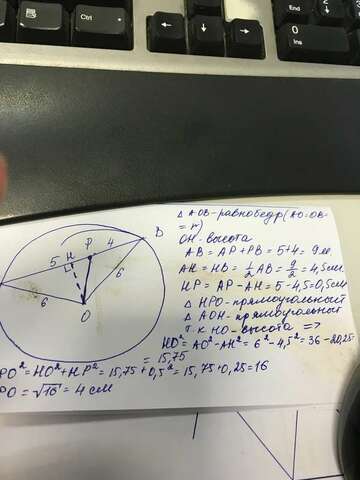 Ctrl
0
Ins
Δ AOB-равнобедр(AO=OB
=r)
OH-высота
AB=AP+PB=5+4=9см.
AH=HB=1/2 AB=9/2=4,5см.
HP=AP-AH=5-4,5=0,5см
Δ HPO-прямоугольный
Δ AOH-прямоугольный
т.к HO-высота =>
HO²=AO²-AH²=6²-4,5²=36-20,25
=15,75
PO²=HO²+HP²=15,75+0,5²=15,75+0,25=16
PO=√16=4см
B
P
4
H
5
6
6
O